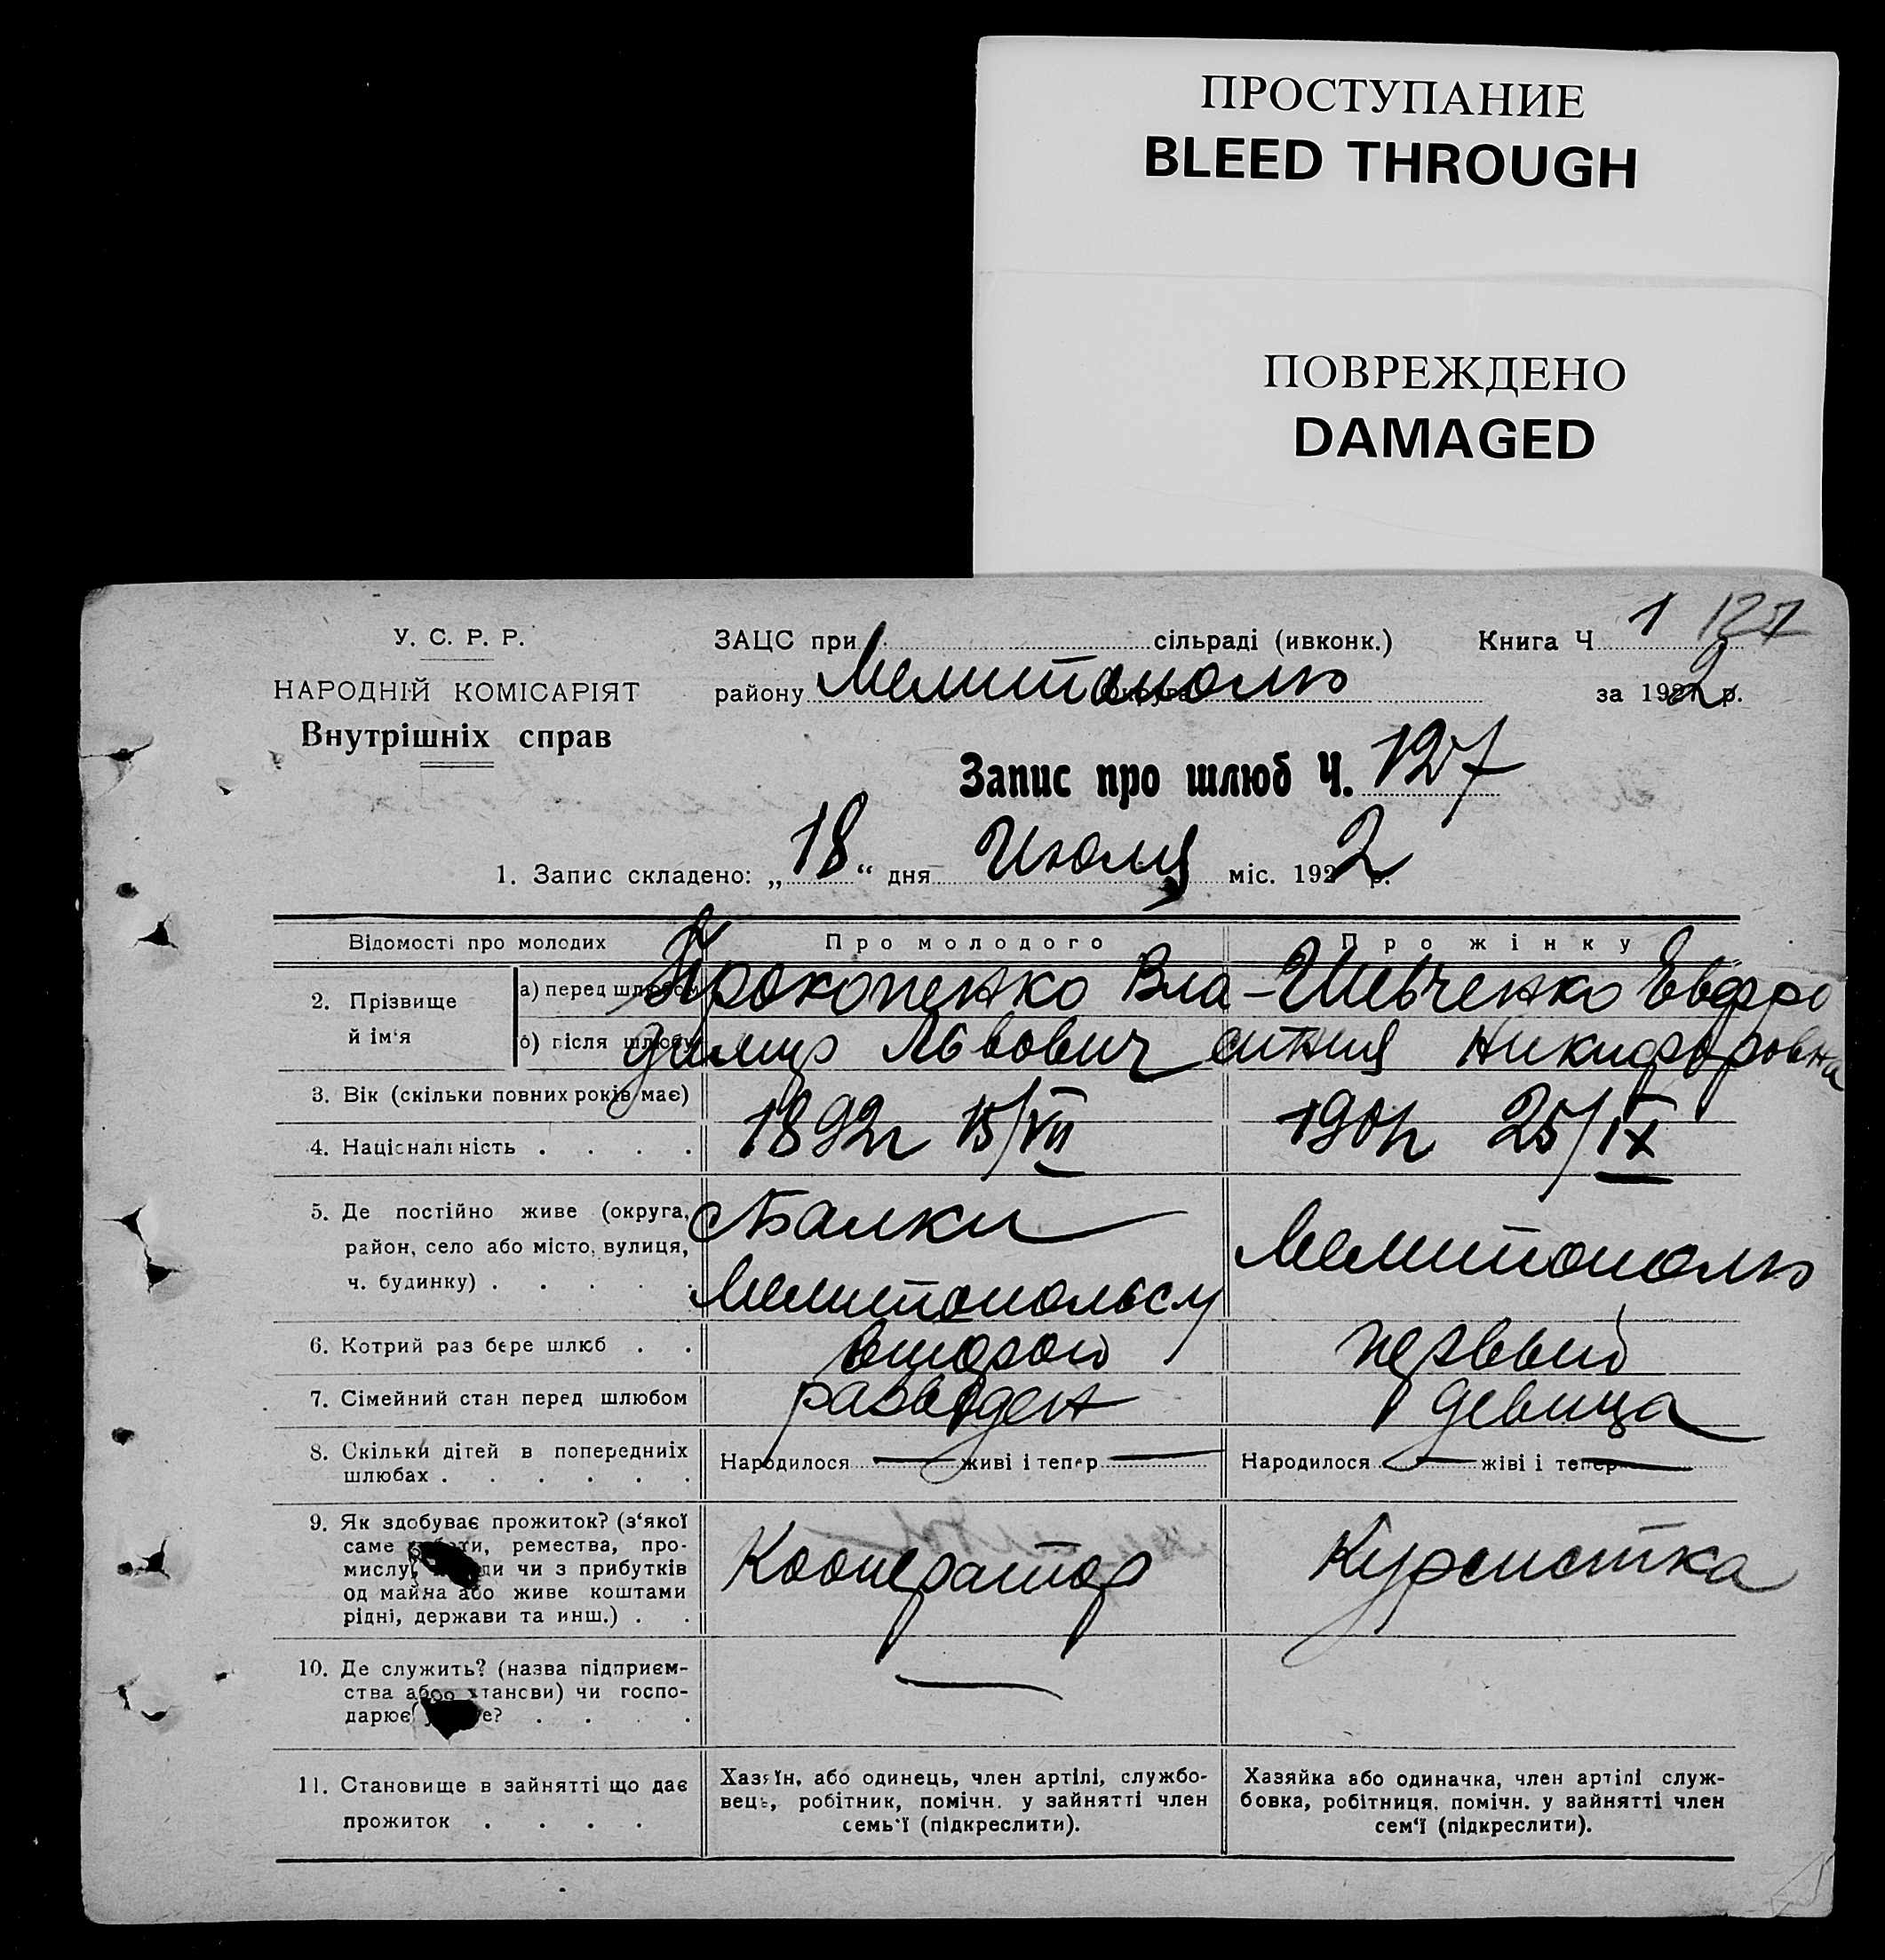 ПРОСТУПАНИЕ
BLEED THROUGH
ПОВРЕЖДЕНО
DAMAGED
1 127
У. С. Р. Р.
ЗАЦС при сільраді (ивконк.) Книга Ч
НАРОДНІЙ КОМІСАРІЯТ
району Мелитополь за 1922 р.
Внутрішніх справ
Запис про шлюб Ч. 127
1. Запис складено: „ 18 “ дня Июля міс. 1922 р.
Відомості про молодих Про молодого Про жінку
2. Прізвище й ім‘я
а) перед шлюбом Прокопенко Вла- Шевченко Евфро
б) після шлюбу димир Львович синия Никифоровна
3. Вік (скільки повних років має)
4. Національність . . . .
1892г 15/VII 1901г 25/IX
5. Де постійно живе (округа,
район, село або місто, вулиця,
ч. будинку) . . . . .
с Балки
Мелитопольск у
Мелитополь
6. Котрий раз бере шлюб . . второй первый
7. Сімейний стан перед шлюбом разведен девица
8. Скільки дітей в попередниіх
шлюбах . . . . . .
Народилося — живі і тепер —
Народилося — жіві і тепер —
9. Як здобуває прожиток? (з‘якої
саме ремества, про-
мислу, чи з прибутків
од майна або живе коштами
рідні, держави та инш.) . .
Кооператор Курсистка
10. Де служить? (назва підприєм-
ства або установи) чи госпо-
дарює
—
11. Становище в зайнятті що дає
прожиток . . . .
Хазяїн, або одинець, член артілі, службо-
вець, робітник, помічн. у зайнятті член
семь‘ї (підкреслити).
Хазяйка або одиначка, член артілі служ-
бовка, робітниця, помічн. у зайнятті член
сем‘ї (підкреслити).